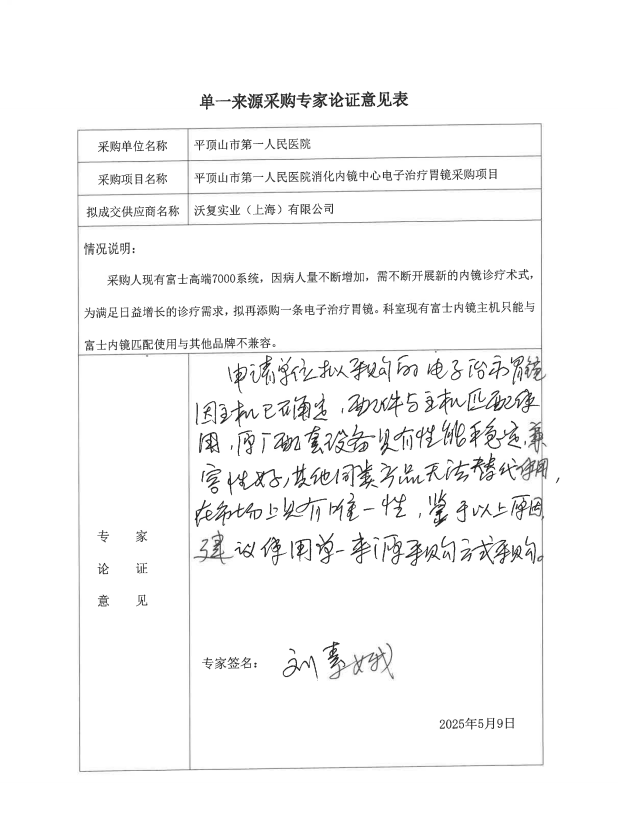 单一来源采购专家论证意见表
采购单位名称 平顶山市第一人民医院
采购项目名称 平顶山市第一人民医院消化内镜中心电子治疗胃镜采购项目
拟成交供应商名称 沃复实业（上海）有限公司
情况说明：
采购人现有富士高端7000系统，因病人量不断增加，需不断开展新的内镜诊疗术式，
为满足日益增长的诊疗需求，拟再添购一条电子治疗胃镜。科室现有富士内镜主机只能与
富士内镜匹配使用与其他品牌不兼容。
专家
论证
意见
申请单位拟采购的电子治疗胃镜
因主机已确定，配件与主机匹配使
用，原厂配套设备具有性能稳定，兼
容性好，其他同类产品无法替代使用，
在市场上具有唯一性，鉴于以上原因，
建议使用单一来源采购方式采购。
专家签名： 刘素娥
2025年5月9日